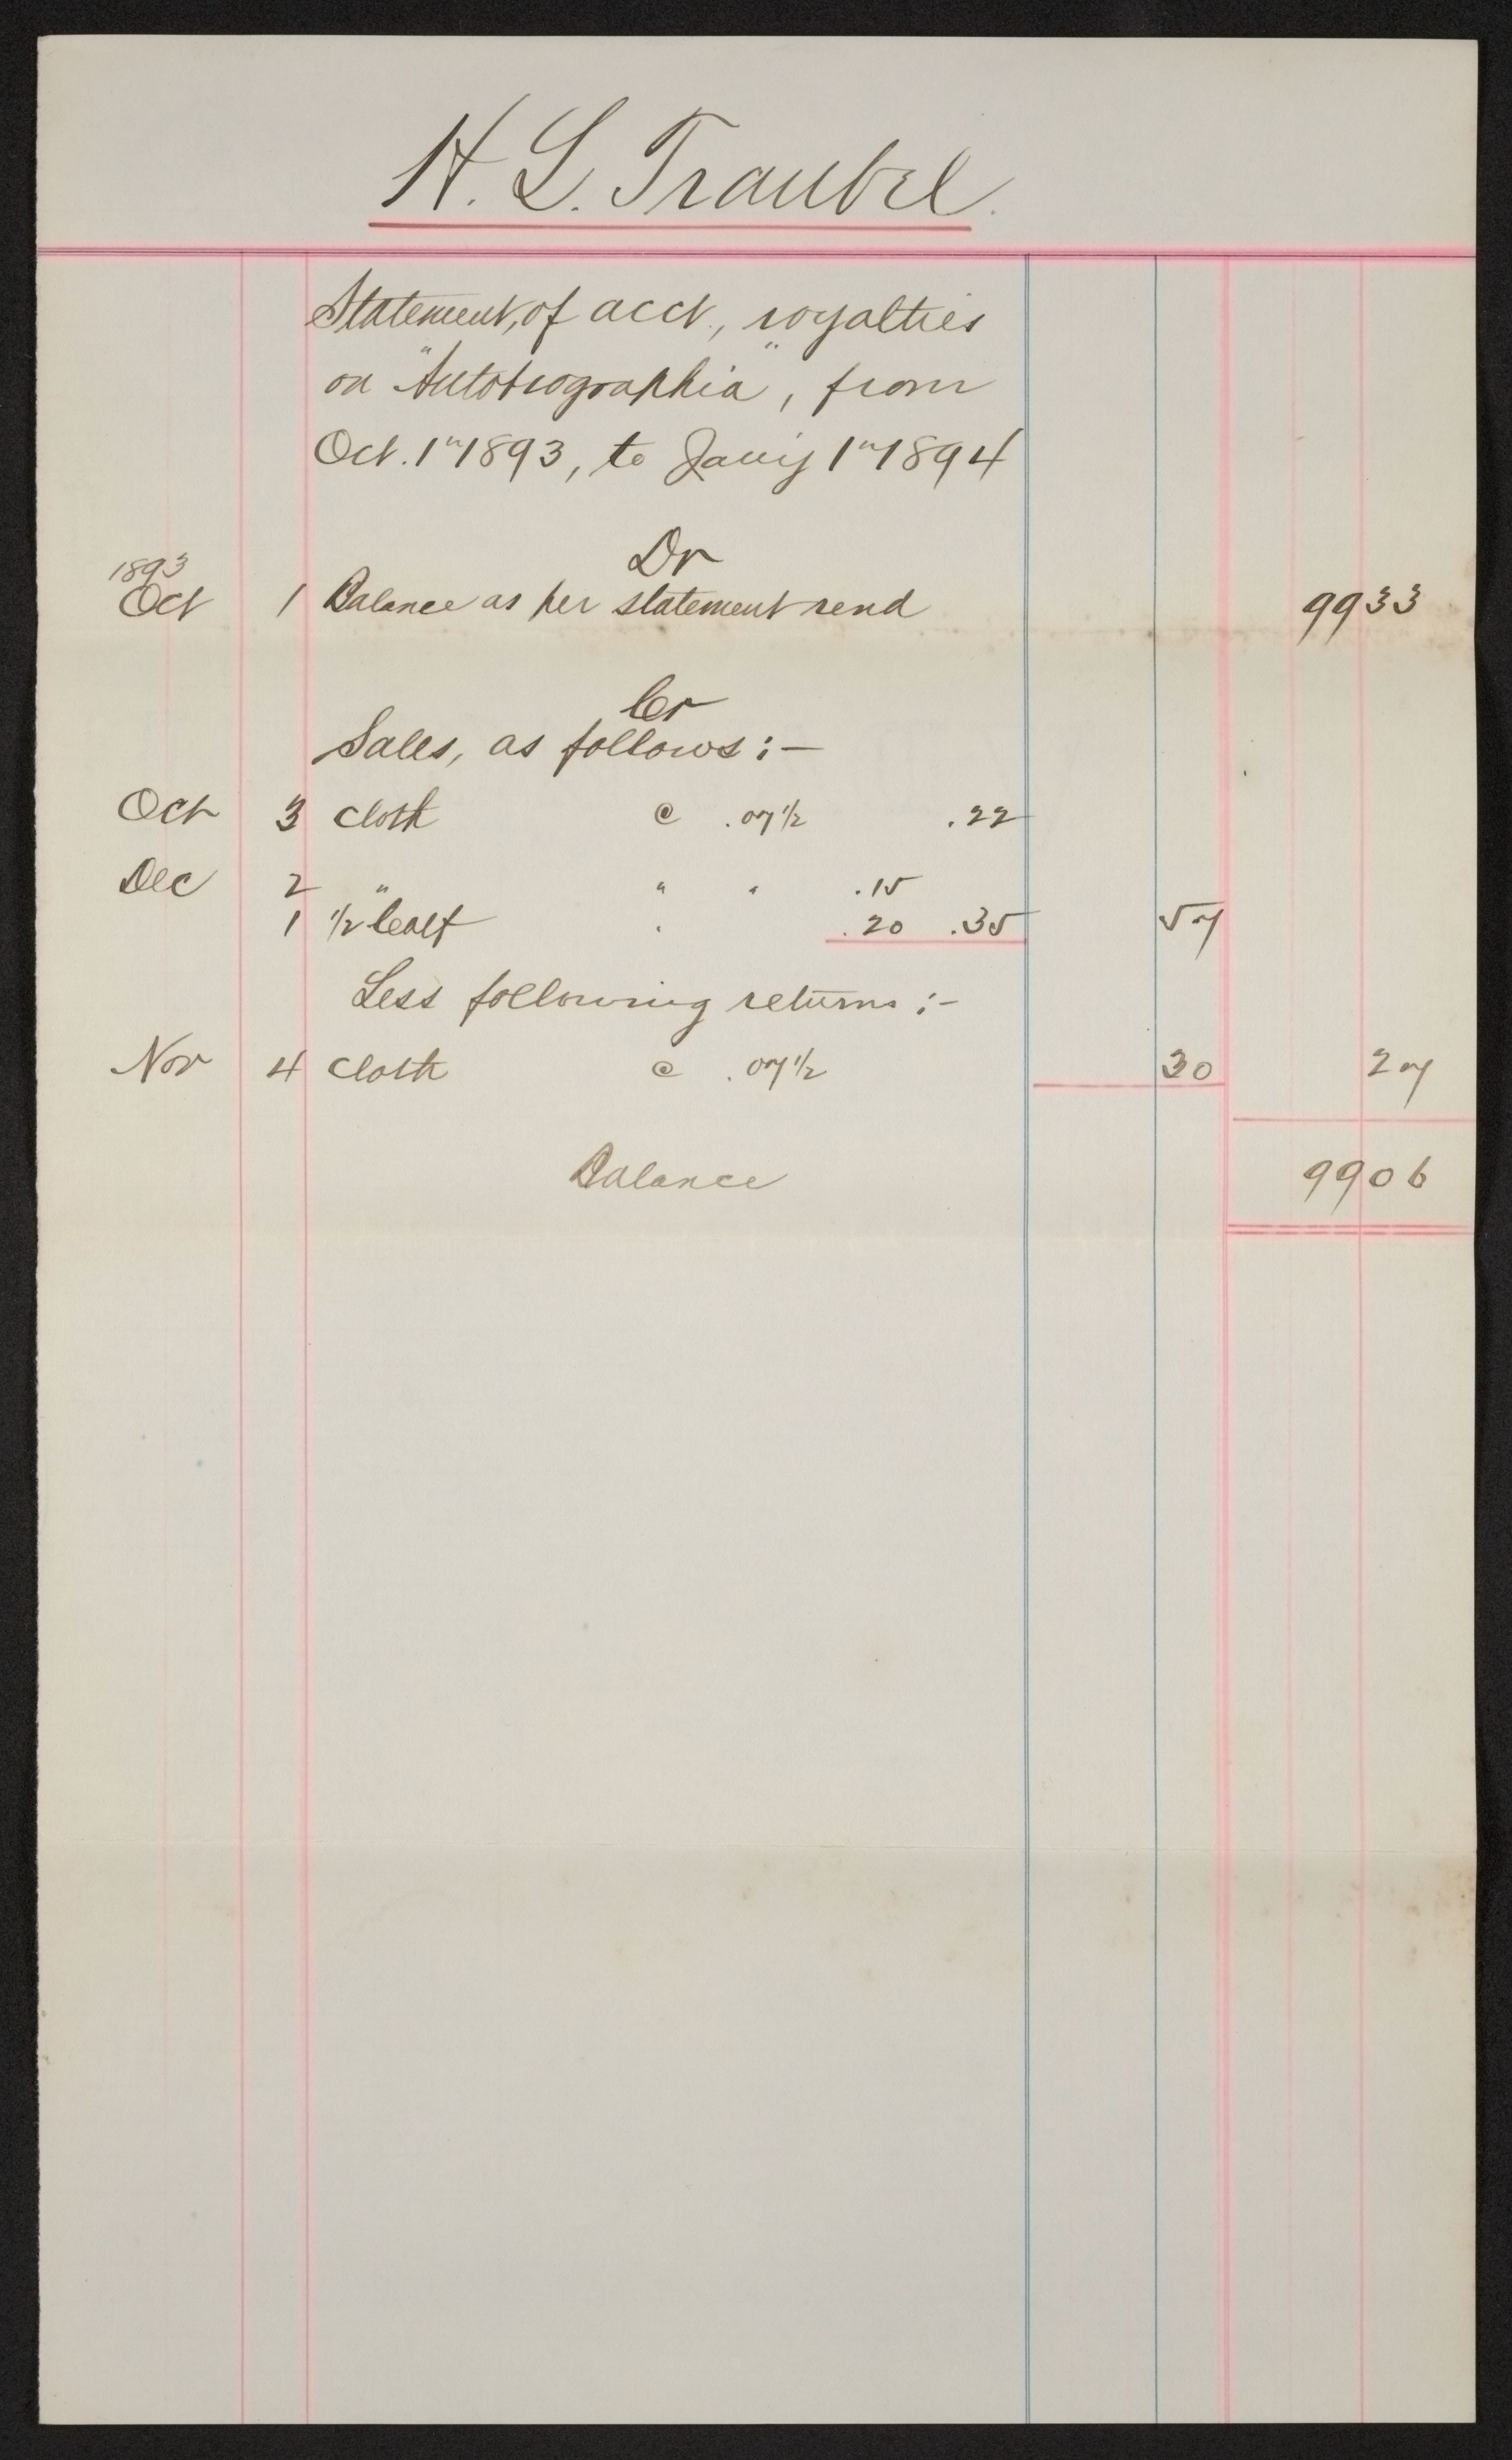 H. L. Traubel.
Statement, of acct., royalties
on "Autobiographia", from
Oct. 1" 1893, to Jan'y 1" 1894
Dr
1893
Oct 1 Balance as per statement rend 99 33
Cr
Sales, as follows :-
Oct 3 cloth @ .07 1/2 .22
Dec 2 " " " .15
1 1/2 Calf " .20 .35 57
Less following returns :-
Nov 4 cloth @ .07 1/2 30 27
Balance 99 06